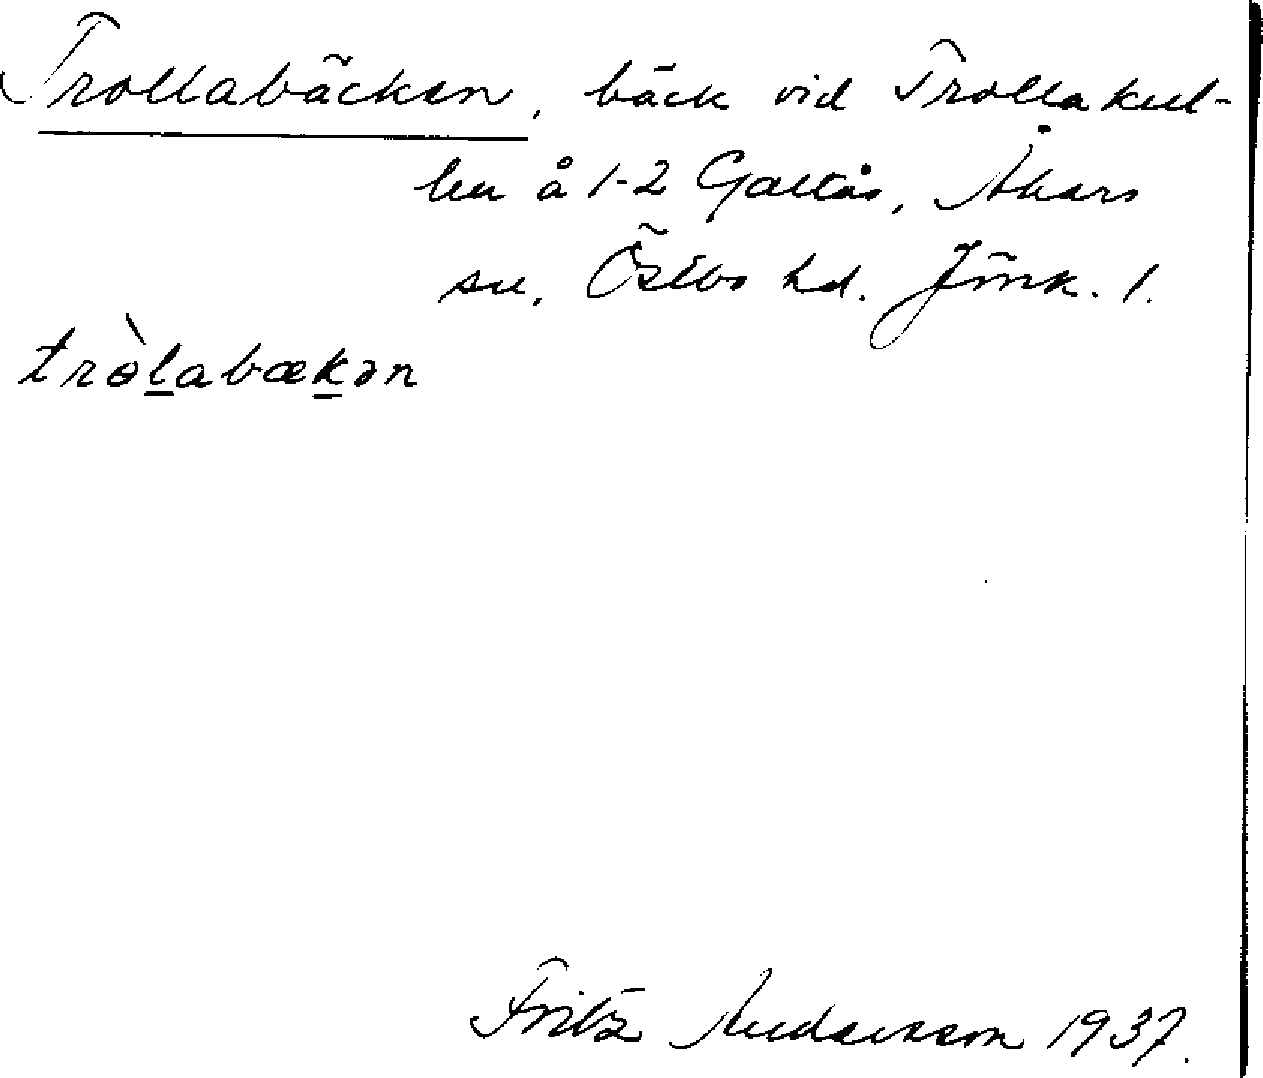 Trollabäcken, bäck vid Trollakul-
len å 1-2 Galtås, Åkers
sn, Östbo hd. Jönk. l.
tròḻabæḵən
Fritz Andersson 1937.